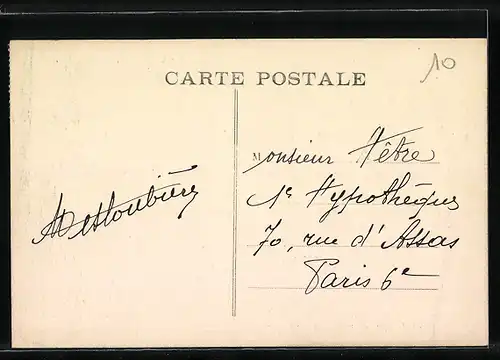 10
CARTE POSTALE
Monsieur Hêtre
1e Hypothèques
70, rue d'Assas
Paris 6e